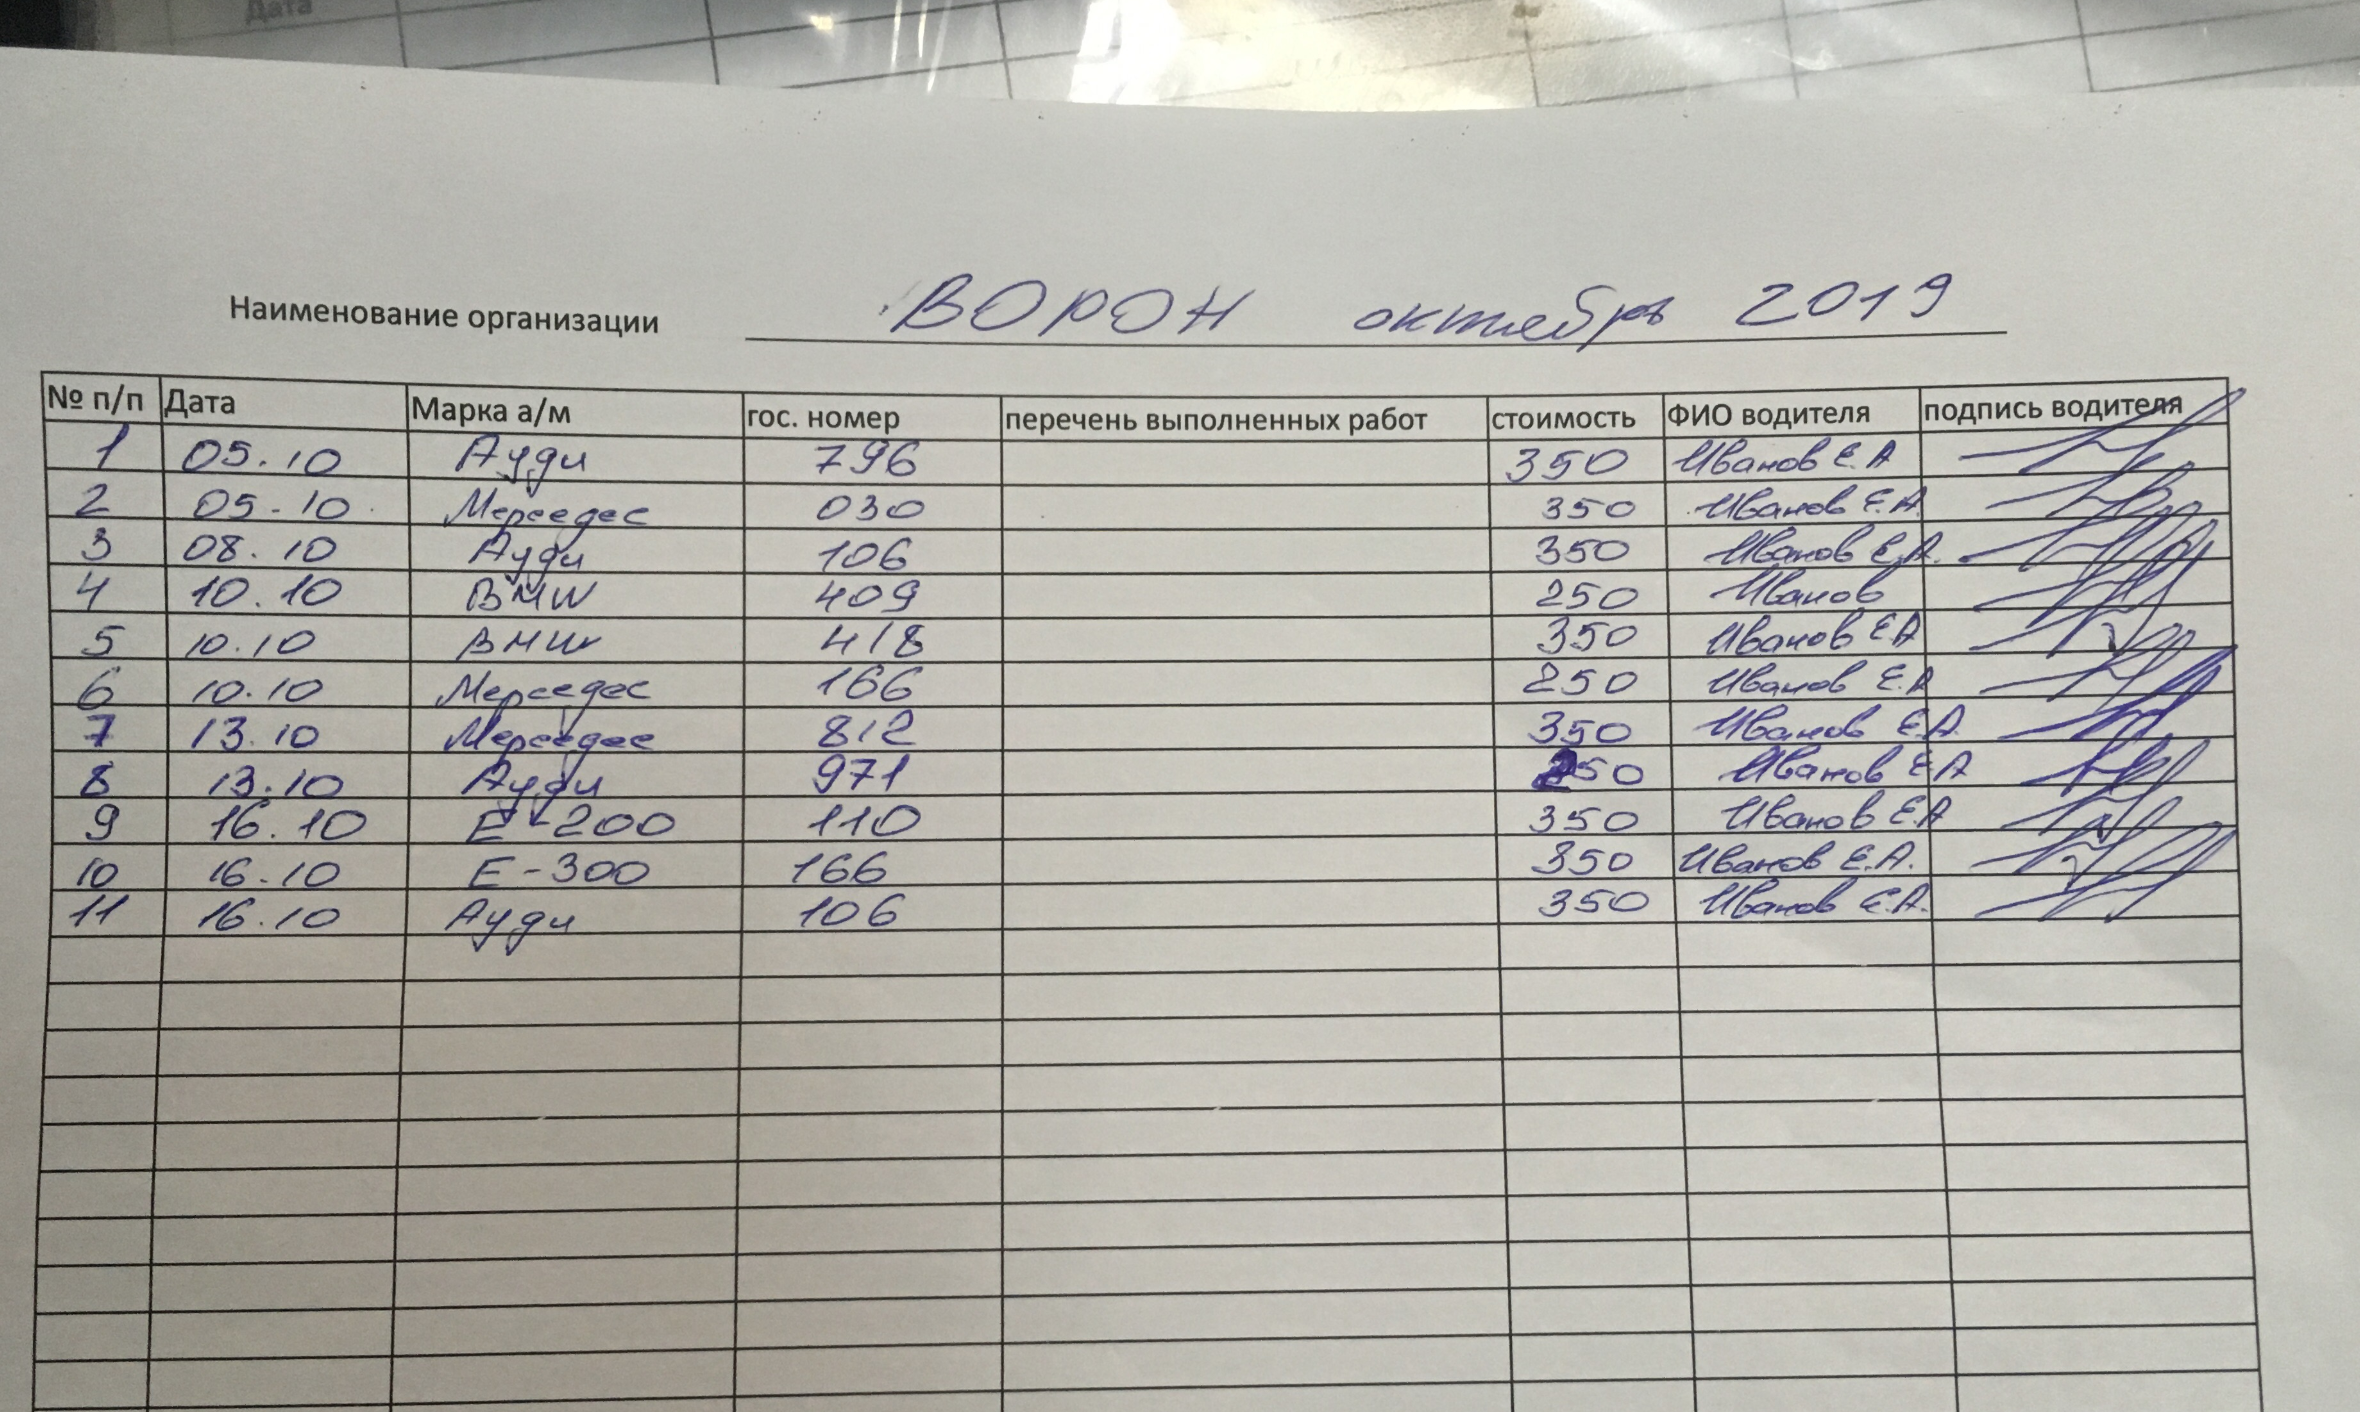 Дата
Наименование организации ВОРОН октябрь 2019
№ п/п Дата Марка а/м гос. номер перечень выполненных работ стоимость ФИО водителя подпись водителя
1 05.10 Ауди 796 350 Иванов Е.А
2 05-10 Мерседес 030 350 Иванов Е.А.
3 08.10 Ауди 106 350 Иванов Е.А.
4 10.10 BMW 409 250 Иванов
5 10.10 BMW 418 350 Иванов Е.А
6 10.10 Мерседес 166 250 Иванов Е.А
7 13.10 Мерседес 812 350 Иванов Е.А.
8 13.10 Ауди 971 250 Иванов Е.А
9 16.10 E-200 110 350 Иванов Е.А
10 16.10 E-300 166 350 Иванов Е.А.
11 16.10 Ауди 106 350 Иванов Е.А.